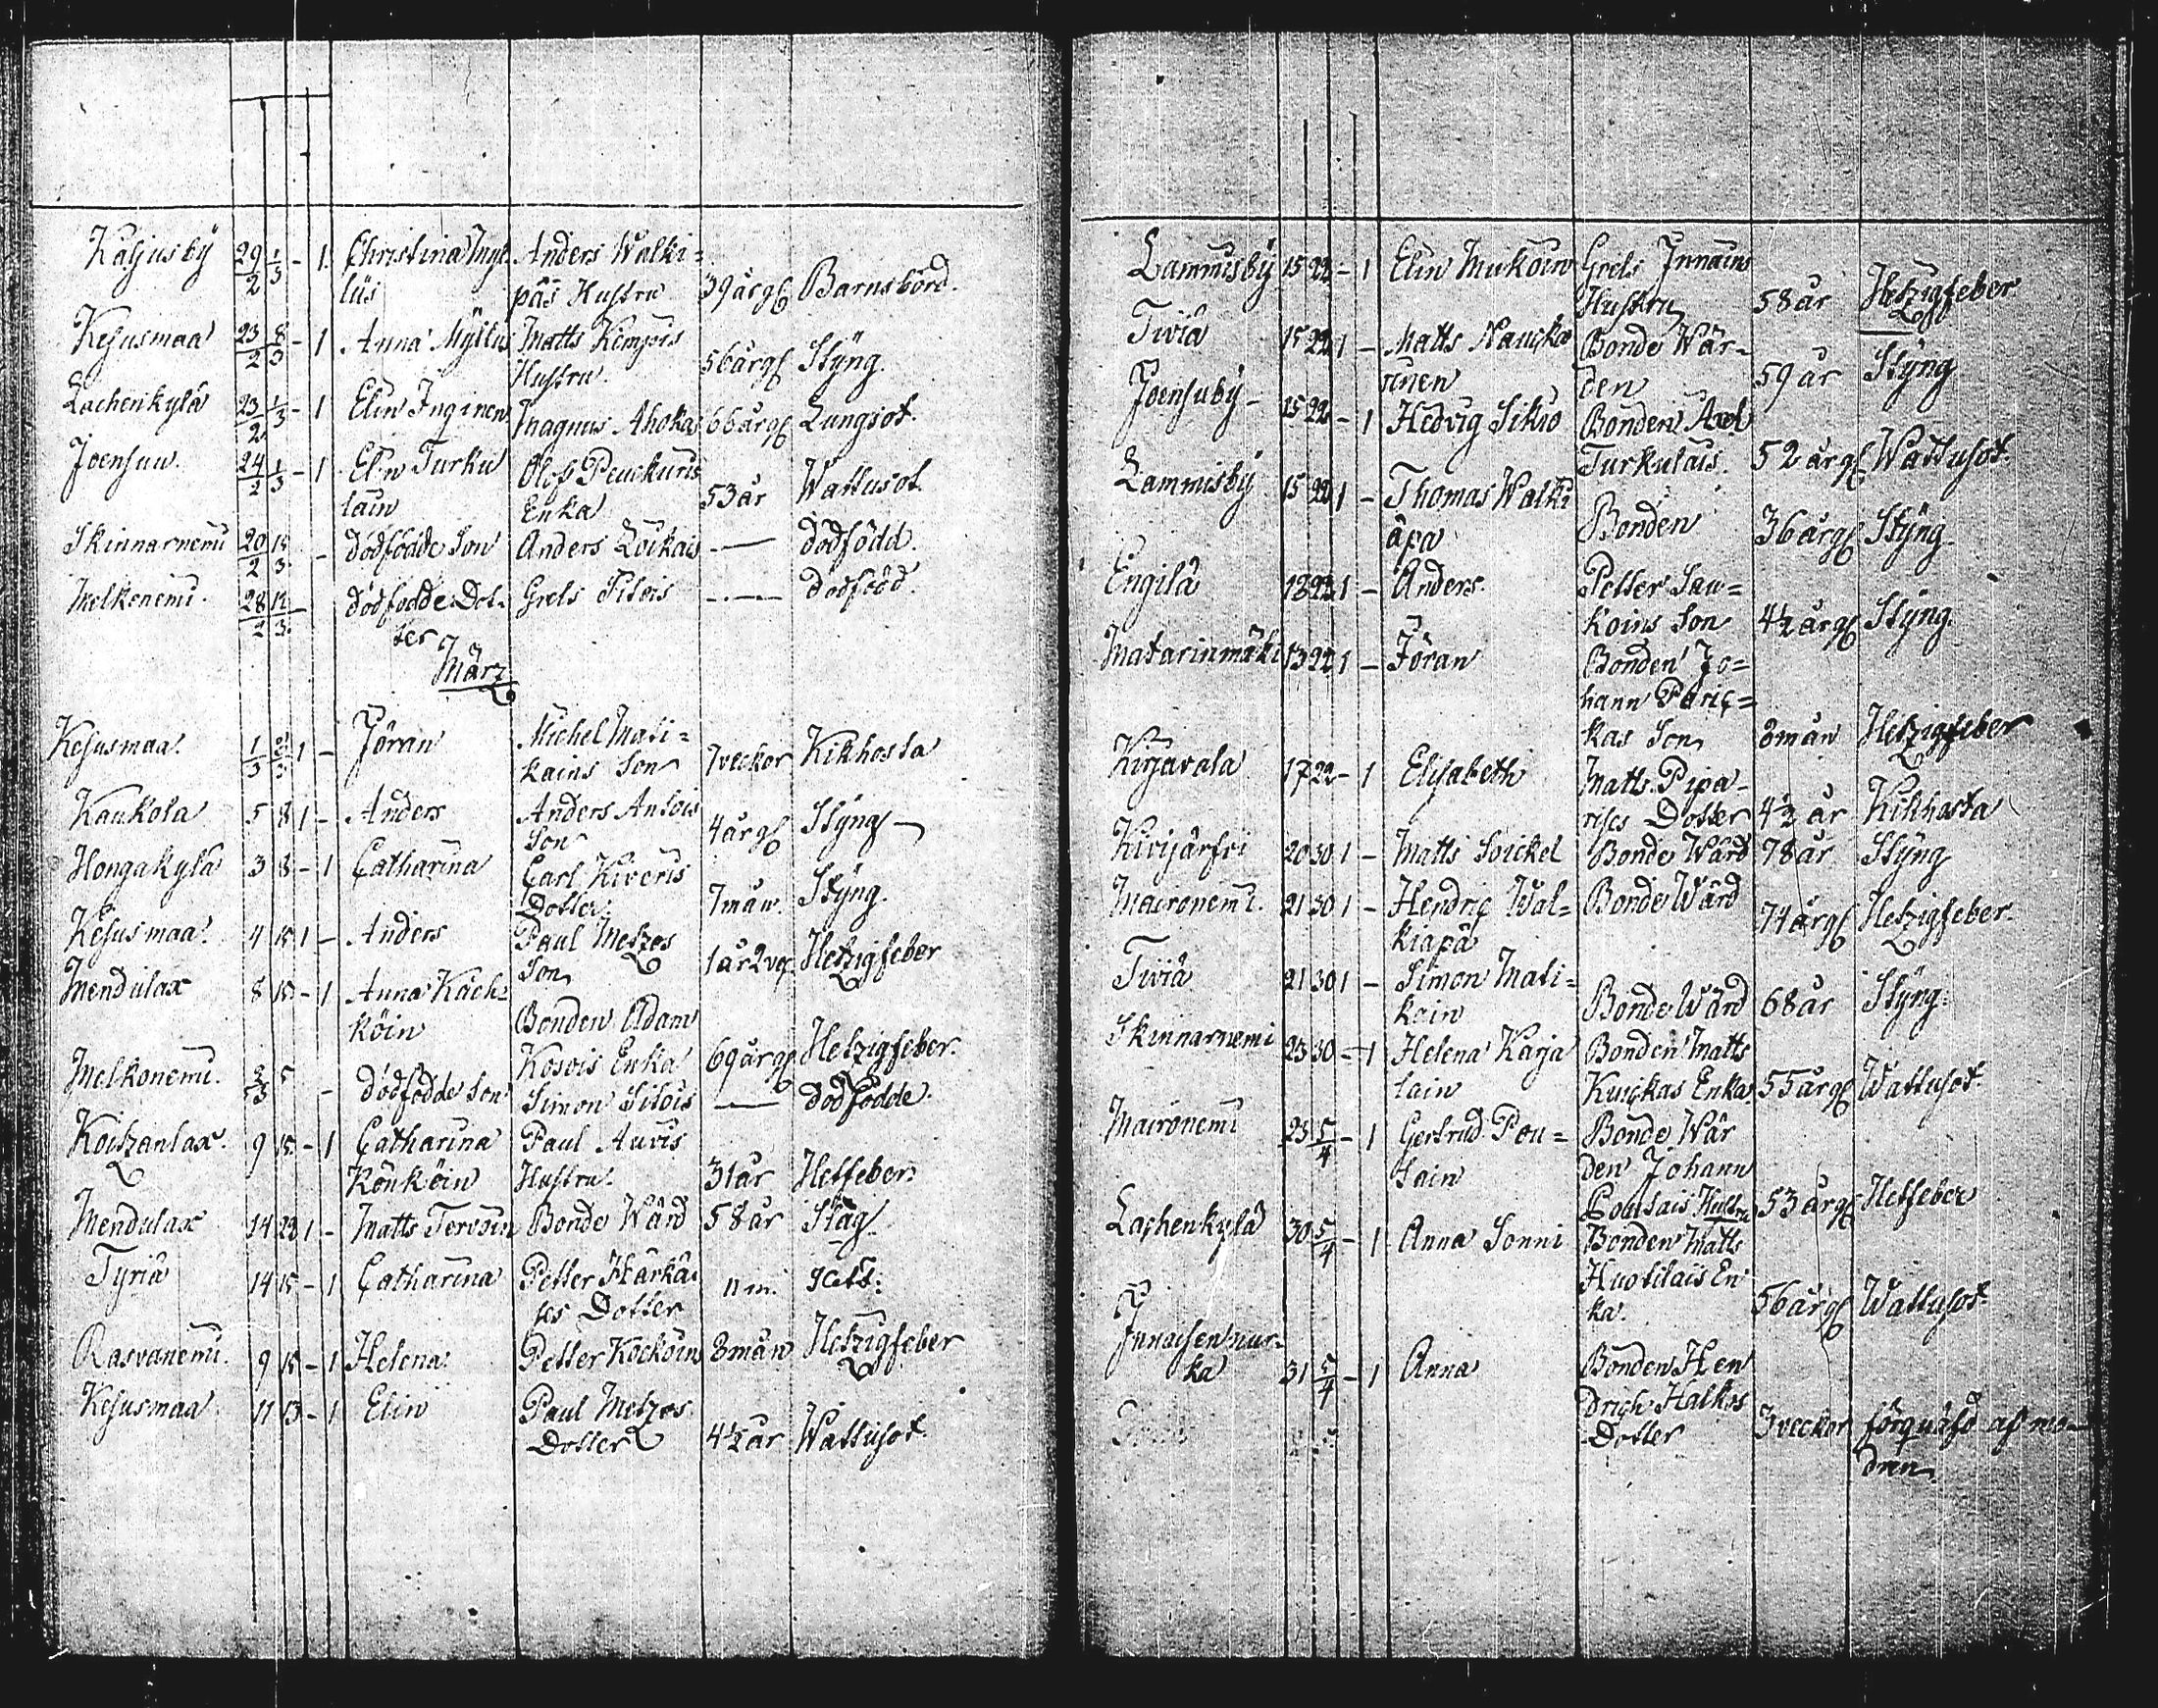 Käljusby 29/2 1/3 - 1. Christina Myl- Anders Walki=
lüs päs Hustru 39 årg Barnsbörd.
Kesusmaa 23/2 8/3 - 1 Anna Myllus Matts Kempois
Hustru. 56 årg Styng.
Lachenkylä 23/2 1/3 - 1 Elin Inginen Magnus Ahokas 66 årg Lungsot.
Joensuu. 24/2 1/3 - 1 Elin Turku Olof Peuckuris
lain Enka 53 år Wattusot.
Skinnarnemi 20/2 15/3 - dödfödde Son Anders Loikais — dödfödd.
Melkonemi. 28/2 12/3 - dödfödde Dot- Grels Silois — dödföd.
ter
März
Kesusmaa. 1/3 2/3 1 - Jöran Michel Mati=
kains Son 7 veckor Kikhosta
Kaukola 5 8 1 - Anders Anders Antois
Son 4 årg Styng
Hongakylä 3 8 - 1 Catharina Carl Kiveris
Dotter. 7 mån. Styng.
Kesusmaa. 4 15 1 - Anders Paul Metzos
Son 1 år 2 ve Hetzigfeber
Mendulax 8 15 - 1 Anna Käch= Bonden Adam
köin Kosois Enka 69 årg Hetzigfeber.
Melkonemi. 3/3 5 - dödfödde Son Simon Silois — dödfödde.
Koitzanlax. 9 15 - 1 Catharina Paul Auvis
Könköin Hustru. 31 år Hetfeber.
Mendulax 14 23 1 - Matts Terosin Bonde Wärd 58 år Stäg
Tyriä 14 15 - 1 Catharina Petter Härkä
ses Dotter 11 m.
Rasvanemi. 9 15 - 1 Helena Petter Kocköins 8 mån Hetzigfeber
Kesusmaa 11 13 - 1 Elin Paul Metzos
Dotter 4½ år Wattusot.
Lammisby 15 22 - 1 Elin Muköin Grels Innains
Hustru 58 år Hetzigfeber
Tiviä 15 22 1 - Matts Nauska Bonde Wär-
rinen den 59 år Styng
Joensuby - 15 22 - 1 Hedvig Sikio Bonden Axel
Turkulais. 52 årg Wattusot.
Lammisby 15 22 1 - Thomas Walki
äpä Bonden 36 årg Styng.
Engilä 13 22 1 - Anders. Petter Sau=
koins Son 4½ årg Styng.
Matarinmäki 13 22 1 - Jöran Bonden Jo=
hann Paric=
kas Son 8 mån Hetzigfeber
Kirjavala 17 22 - 1 Elisabeth Matts Pipa-
rises Dotter 4½ år Kikhosta
Kivijärfvi 20 30 1 - Matts Soickel Bonde Wärd 78 år Styng
Maironemi. 21 30 1 - Hendric Wal= Bonde Wärd
kiapä 74 årg Hetzigfeber.
Tiviä 21 30 1 - Simon Mati=
kain Bonde Wärd 68 år Styng.
Skinnarnemi 23 30 - 1 Helena Karja Bonden Matts
lain Kuickas Enka. 55 årg Wattusot.
Maironemi 23 5/4 - 1 Gertrud Pou= Bonde Wär
tain den Johann
Poutais Hustru 53 årg Hetfeber
Lachenkylä 30 5/4 - 1 Anna Sonni Bonden Matts
Huotilais En
ka. 56 årg Wattusot.
Innaisennur-
ka 31 5/4 - 1 Anna Bonden Hen
drich Halkos
Dotter 3 veckor förquäfd af mo-
dren.